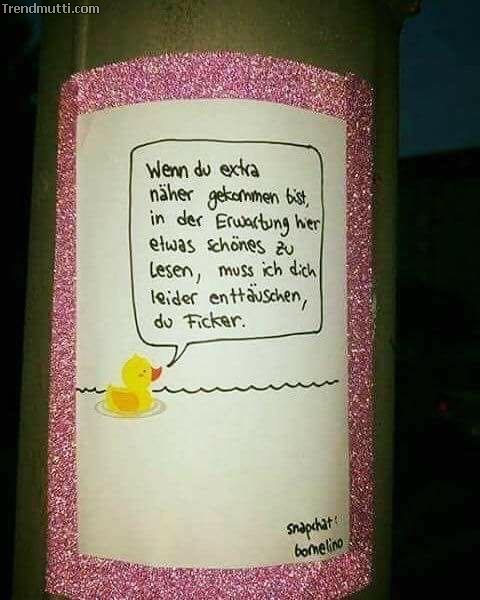 Trendmutti.com
Wenn du extra
näher gekommen bist,
in der Erwartung hier
etwas schönes zu
lesen, muss ich dich
leider enttäuschen,
du Ficker.
snapchat:
bomelino